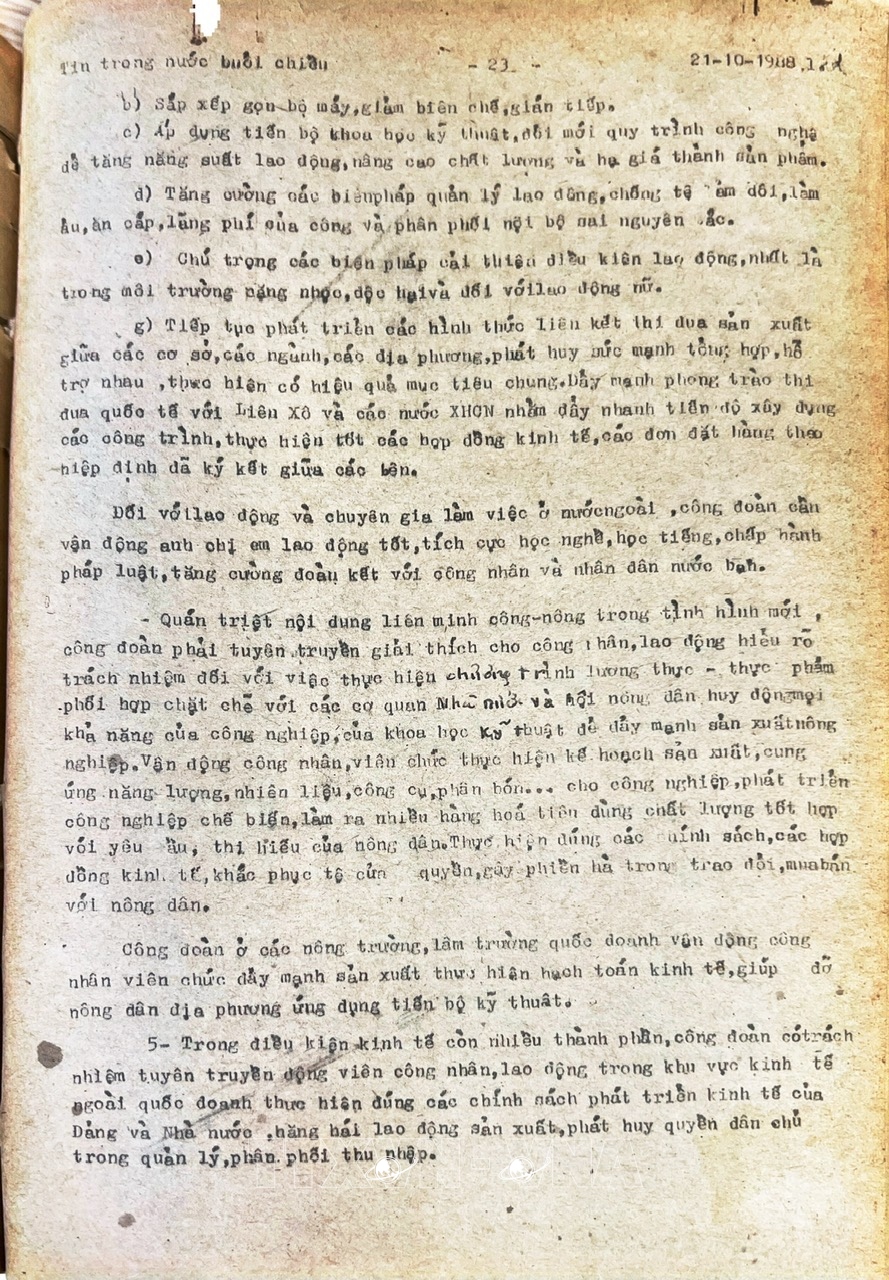 Tin trong nước buổi chiều - 23 - 21-10-1988
b) Sắp xếp gọn bộ máy,giảm biên chế,gián tiếp.
c) Áp dụng tiến bộ khoa học kỹ thuật,đổi mới quy trình công nghệ
để tăng năng suất lao động,nâng cao chất lượng và hạ giá thành sản phẩm.
d) Tăng cường các biênpháp quản lý lao động,chống tệ dối,làm
ẩu,ăn cắp,lãng phí của công và phân phối nội bộ sai nguyên
e) Chú trọng các biện pháp cải thiện điều kiên lao động,nhất là
trong môi trường nặng nhọc,độc hạivà đối vớilao động nữ.
g) Tiếp tục phát triển các hình thức liên kết thi đua sản xuất
giữa các cơ sở,các ngành,các địa phương,phát huy sức mạnh tổng hợp,hỗ
trợ nhau ,thực hiện có hiệu quả mục tiêu chung.Đẩy mạnh phong trào thi
đua quốc tế với Liên Xô và các nước XHCN nhằm đẩy nhanh tiến độ xây dựng
các công trình,thực hiện tốt các hợp đồng kinh tế,các đơn đặt hàng theo
hiệp định đã ký kết giữa các bên.
Đối vớilao động và chuyên gia làm việc ở nướcngoài ,công đoàn cần
vận động anh chị em lao động tốt,tích cực học nghề,học tiếng,chấp hành
pháp luật,tăng cường đoàn kết với công nhân và nhân dân nước bạn.
- Quán triệt nội dung liên minh công-nông trong tình hình mới ,
công đoàn phải tuyên truyền giải thích cho công nhân,lao động hiểu rõ
trách nhiệm đối với việc thực hiện chương trình lương thực - thực phẩm
phối hợp chặt chẽ với các cơ quan Nhà nước và hội nông dân huy độngmọi
khả năng của công nghiệp,của khoa học kỹ thuật để đẩy mạnh sản xuấtnông
nghiệp.Vận động công nhân,viên chức thực hiện kế hoạch sản xuất,cung
ứng năng lượng,nhiên liệu,công cụ,phân bón... cho công nghiệp,phát triển
công nghiệp chế biến,làm ra nhiều hàng hoá tiêu dùng chất lượng tốt hợp
với yêu cầu, thị hiếu của nông dân.Thực hiện đúng các chính sách,các hợp
đồng kinh tế,khắc phục tệ cửa quyền,gây phiền hà trong trao đổi,muabán
với nông dân.
Công đoàn ở các nông trường,lâm trường quốc doanh vận động công
nhân viên chức đẩy mạnh sản xuất thực hiện hạch toán kinh tế,giúp đỡ
nông dân địa phương ứng dụng tiến bộ kỹ thuât.
5- Trong điều kiện kinh tế còn nhiều thành phần,công đoàn cótrách
nhiệm tuyên truyền động viên công nhân,lao động trong khu vực kinh tế
ngoài quốc doanh thực hiện đúng các chính sách phát triển kinh tế của
Đảng và Nhà nước ,hăng hái lao động sản xuất,phát huy quyền dân chủ
trong quản lý,phân phối thu nhập.